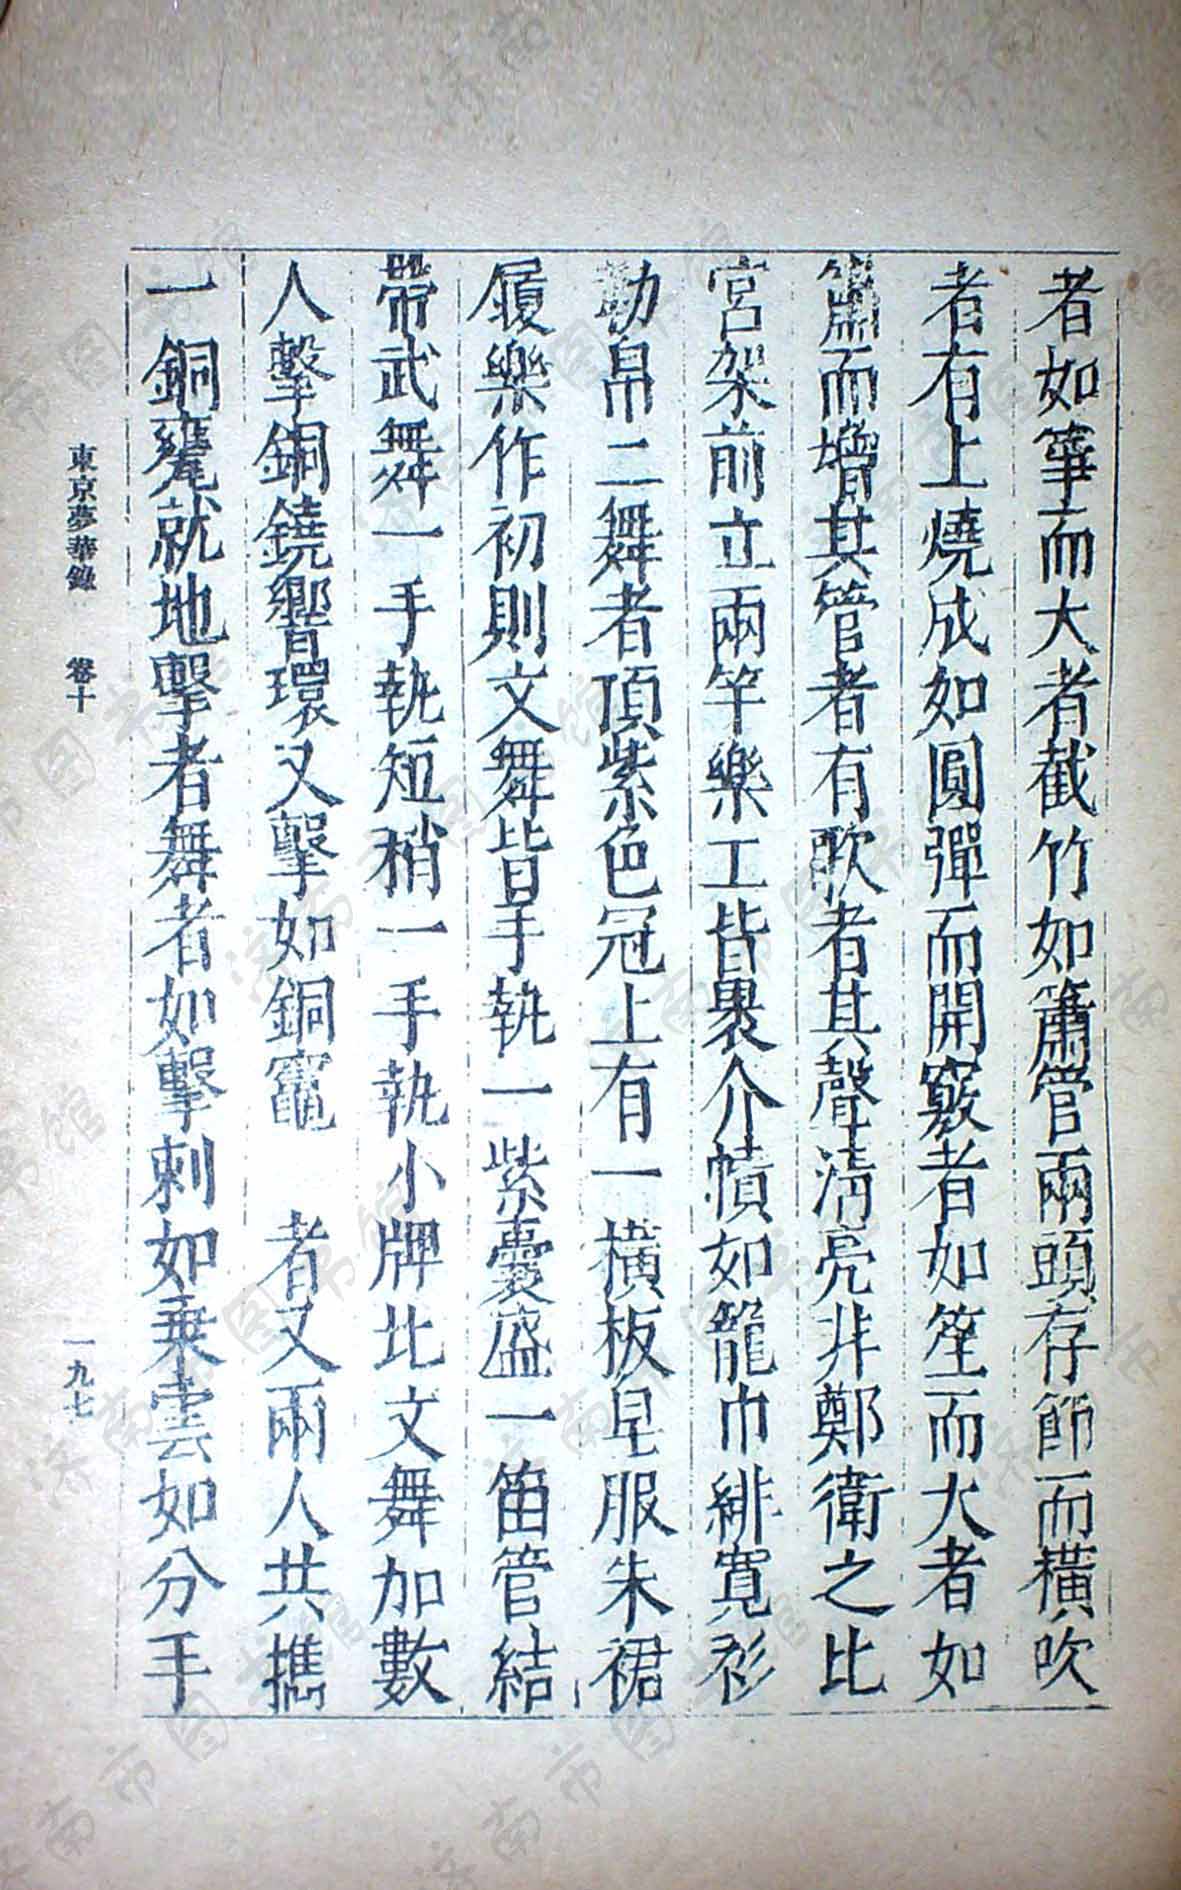 者如篳而大者截竹如簫管兩頭存節而橫吹
者有上燒成如圓彈而開竅者如筀而大者如
簫而增其管者有歌者其聲清亮非鄭衛之比
宮架前立兩竿樂工皆裹介幘如籠巾緋寬衫
勒帛二舞者頂紫色冠上有一橫板皂服朱裙
履樂作初則文舞皆手執一紫囊盛一笛管結
帶武舞一手執短矟一手執小牌比文舞加數
人擊銅鐃響環又擊如銅竈 者又兩人共攜
一銅甕就地擊者舞者如擊刺如乘雲如分手
東京夢華錄 卷十
一九七